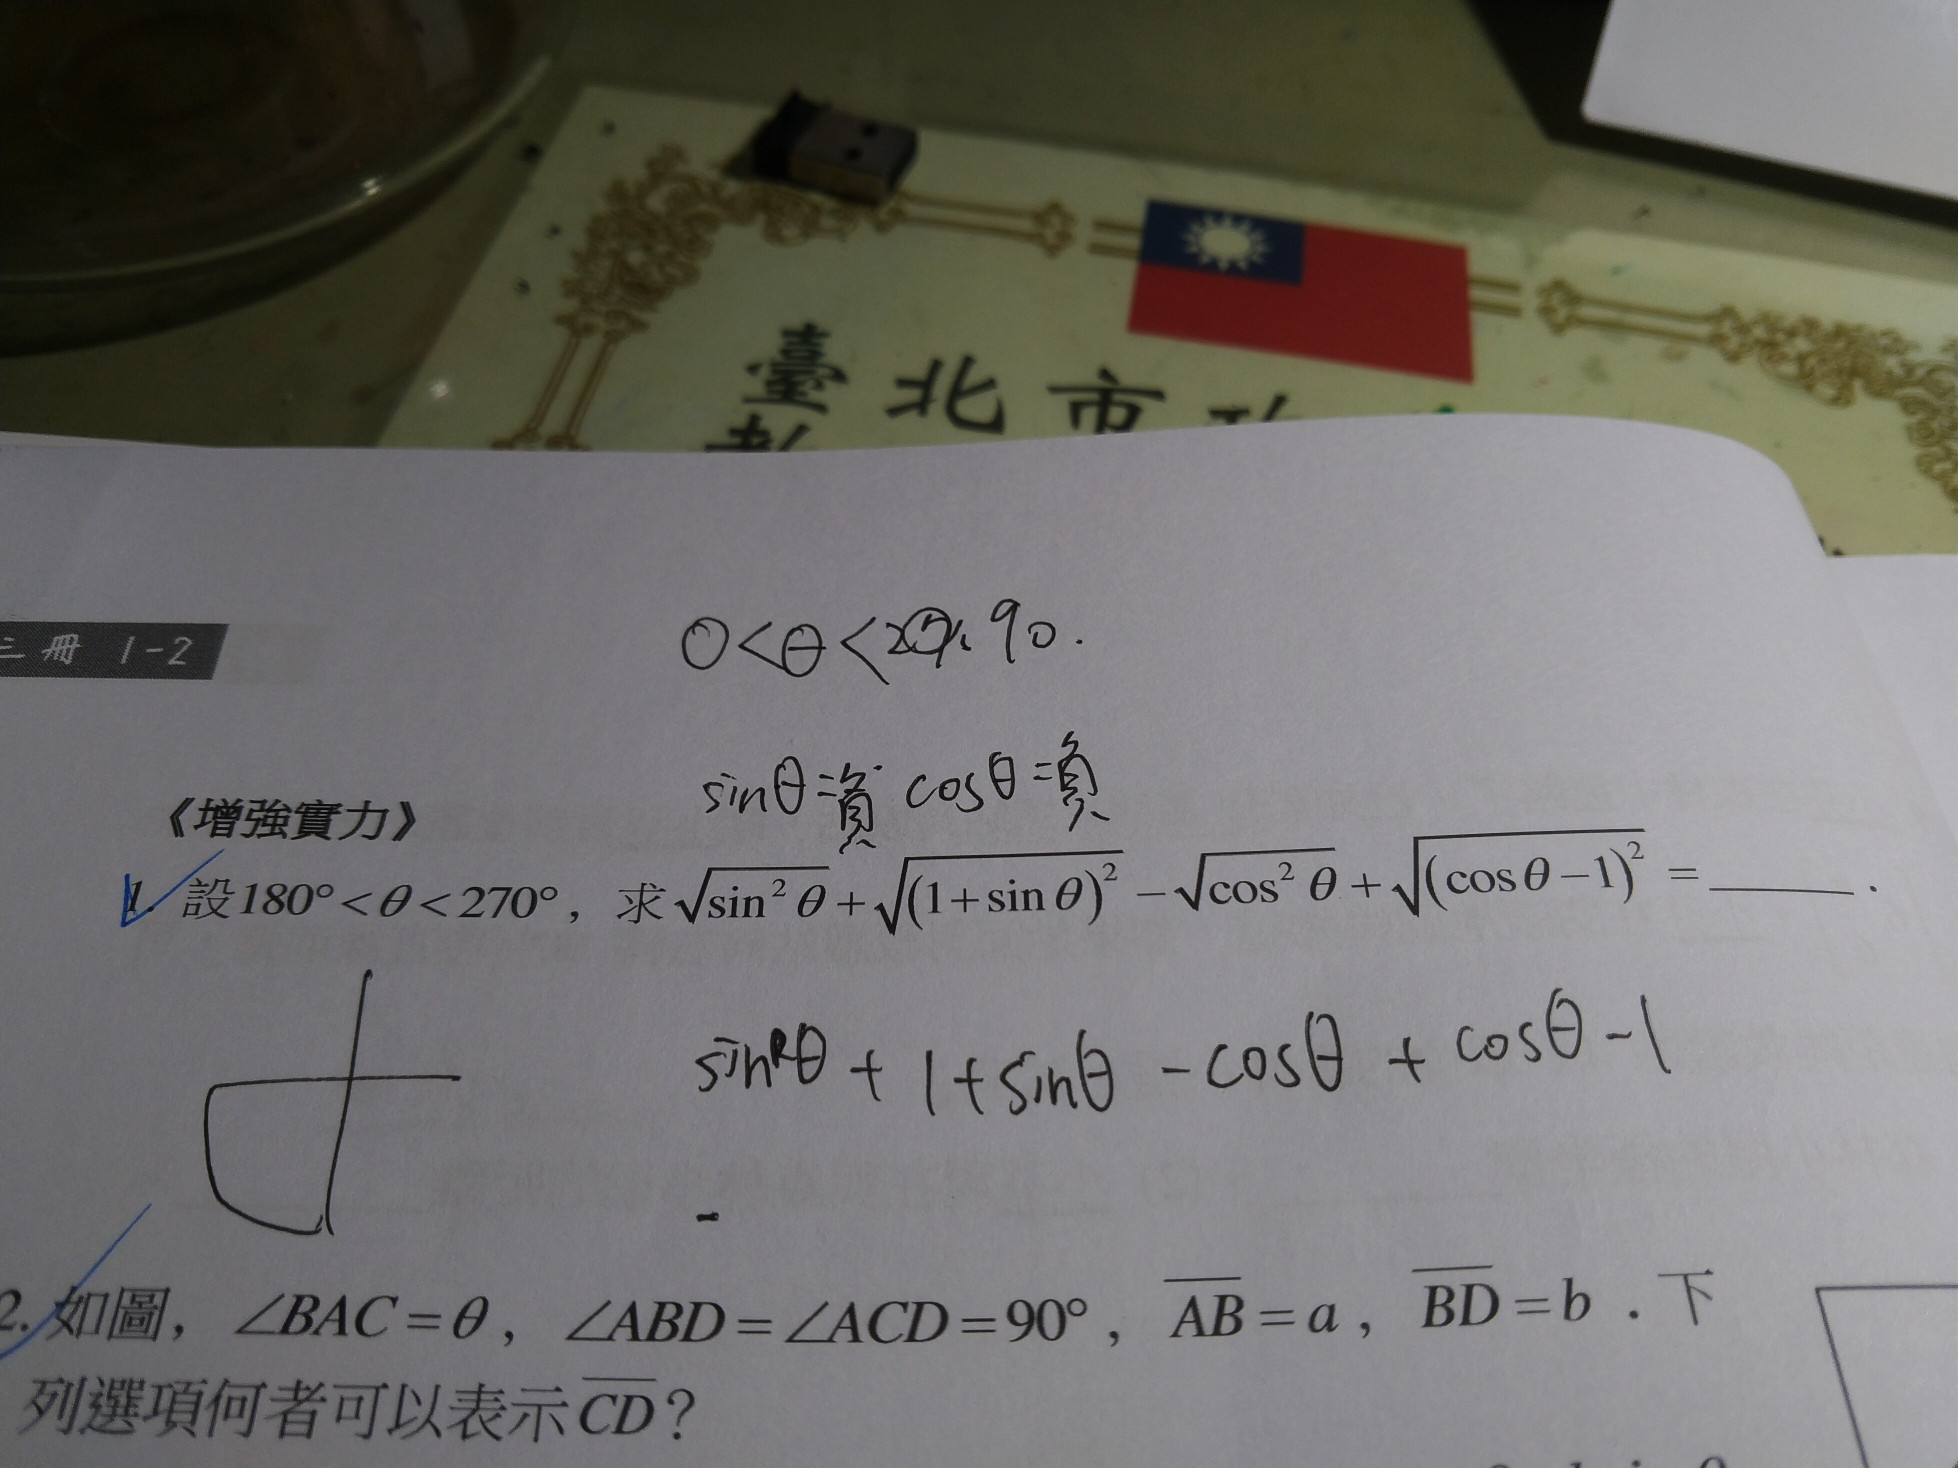 臺北市
三冊 1-2
0<θ< 90.
《增強實力》
sinθ=負 cosθ=負
1. 設180°<θ<270°，求√sin²θ+√(1+sinθ)²-√cos²θ+√(cosθ-1)²=______.
sinθ + 1+sinθ -cosθ + cosθ-1
-
2. 如圖，∠BAC=θ，∠ABD=∠ACD=90°，AB=a，BD=b．下
列選項何者可以表示CD？